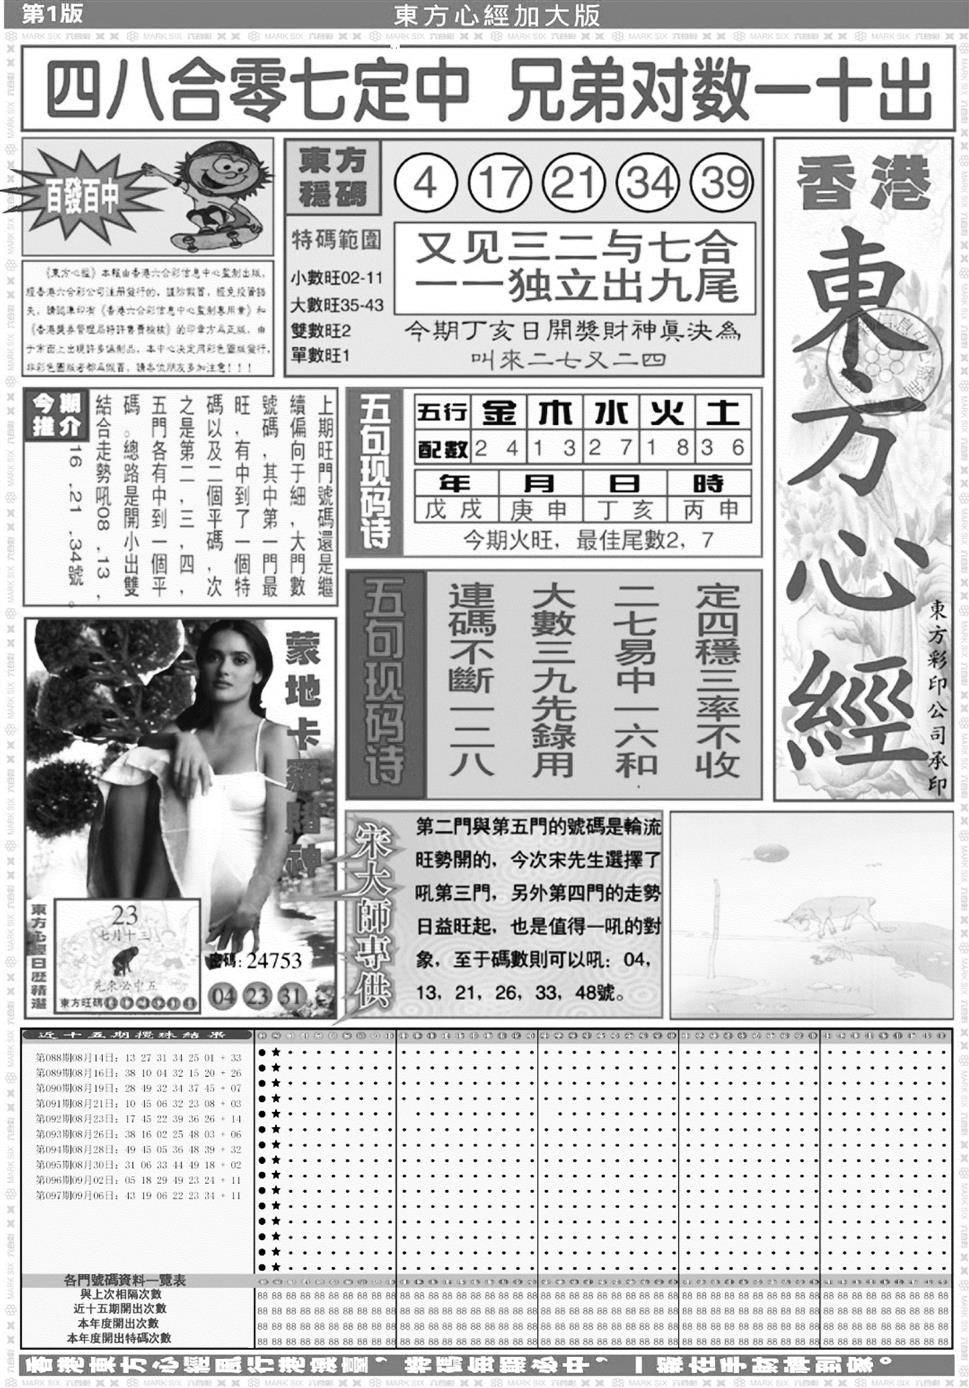 第1版
東方心經加大版
四八合零七定中 兄弟对数一十出
百發百中
東方
穩碼
4 17 21 34 39
特碼範圍
小數旺02-11
大數旺35-43
雙數旺2
單數旺1
又见三二与七合
一一独立出九尾
今期丁亥日開獎財神眞決為
叫來二七又二四
香港
東方心經
東方彩印公司承印
《東方心經》本報由香港六合彩信息中心監制出版,
經香港六合彩公司注册發行的,謹防假冒,經免投資錯
失,請認準印有《香港六合彩信息中心監制專用章》和
《香港獎券管理局特許售賣檢核》的印章方爲正版,由
于市面上出現許多僞制品,本中心決定用彩色圖版發行,
非彩色圖版者都爲假冒,請各位朋友多加注意!!!
今期
推介
上期旺門號碼還是繼
續偏向于細,大門數
號碼,其中第一門最
旺,有中到了一個特
碼以及二個平碼,次
之是第二,三,四,
五門各有中到一個平
碼。總路是開小出雙
結合走勢吼08,13,
16,21,34號。
五句现码诗
五行 金 木 水 火 土
配數 2 4 1 3 2 7 1 8 3 6
年 月 日 時
戊戌 庚申 丁亥 丙申
今期火旺,最佳尾數2,7
五句现码诗
定四穩三率不收
二七易中一六和
大數三九先錄用
連碼不斷一二八
蒙地卡羅賭神
東方心經日歷精選
23
七月十三
先來公中五
東方旺碼
密碼:24753
04 23 31
宋大師專供
第二門與第五門的號碼是輪流
旺勢開的,今次宋先生選擇了
吼第三門,另外第四門的走勢
日益旺起,也是值得一吼的對
象,至于碼數則可以吼:04,
13,21,26,33,48號。
近十五期攪珠結果
第088期08月14日:13 27 31 34 25 01 + 33
第089期08月16日:38 10 04 32 15 20 + 26
第090期08月19日:28 49 32 34 37 45 + 07
第091期08月21日:10 45 06 32 23 08 + 03
第092期08月23日:17 45 22 39 36 26 + 14
第093期08月26日:38 16 02 25 48 03 + 06
第094期08月28日:49 45 05 36 48 39 + 32
第095期08月30日:31 06 33 44 49 18 + 02
第096期09月02日:05 18 29 49 23 24 + 11
第097期09月06日:43 19 06 22 23 34 + 11
各門號碼資料一覽表
與上次相隔次數
近十五期開出次數
本年度開出次數
本年度開出特碼次數
香港東方心經風行港澳臺,特碼每期必中,一版在手財神到家。